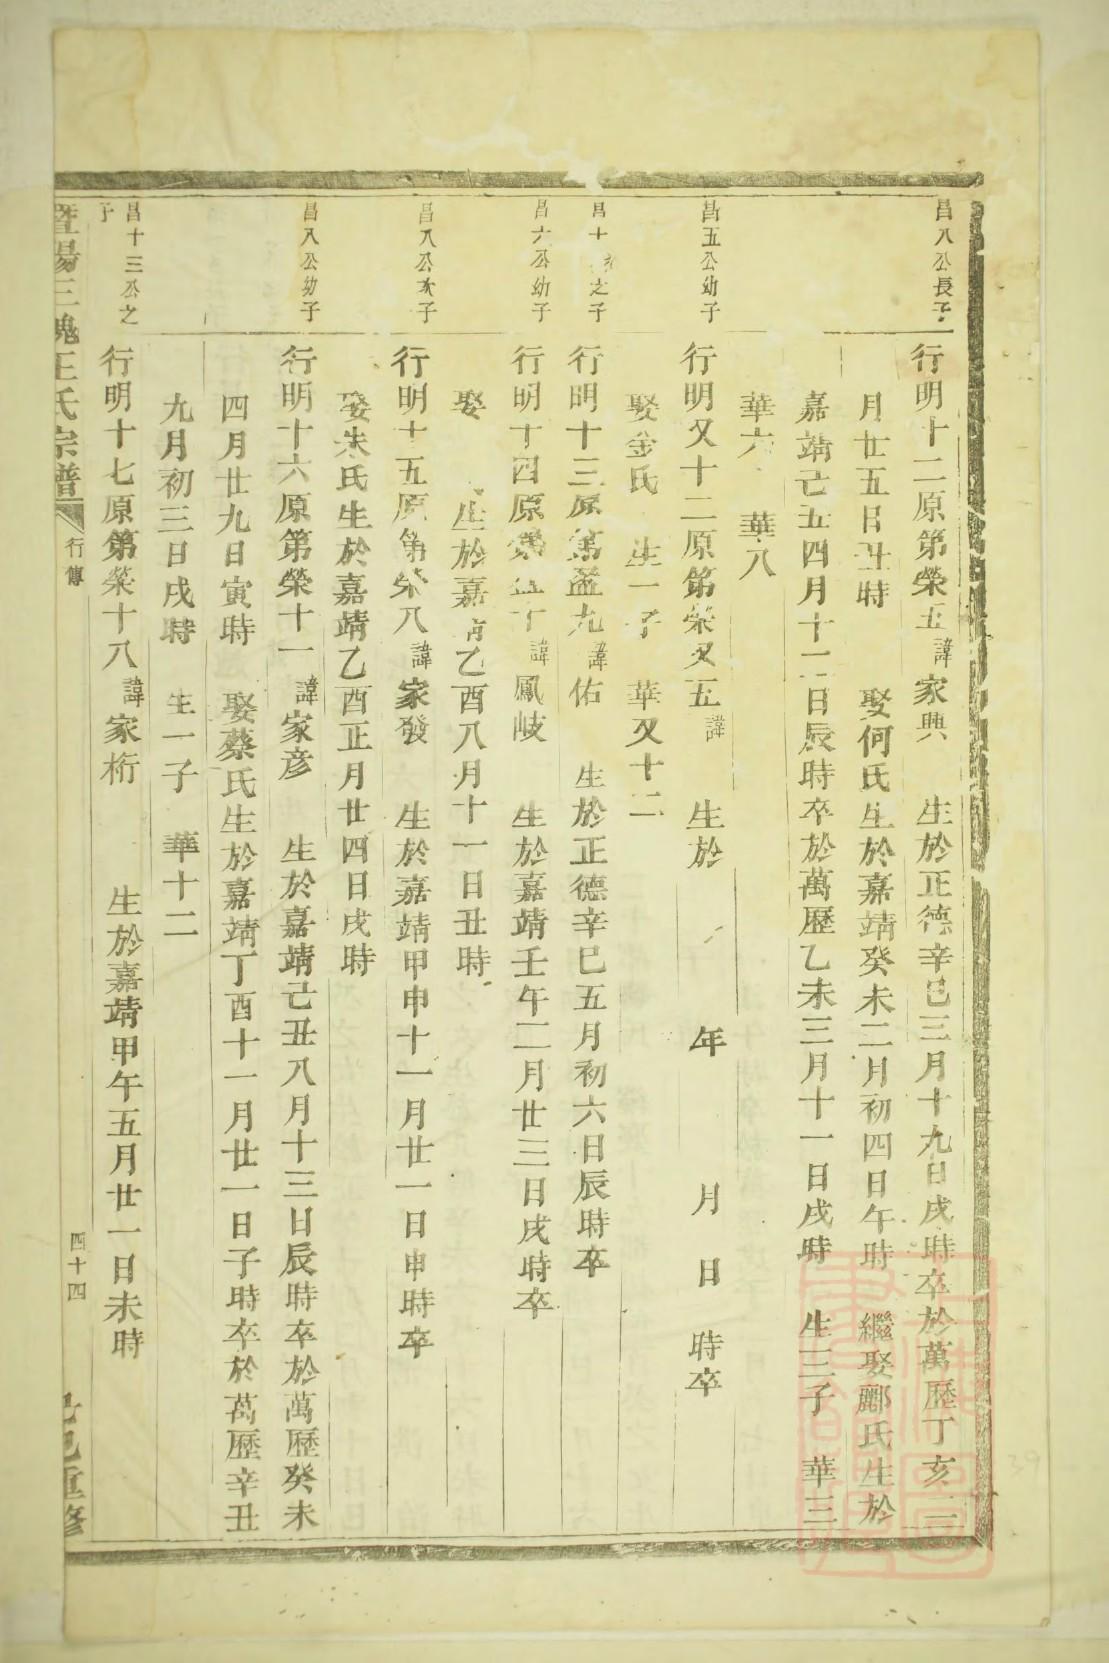 昌八公長子
行明十二原第榮五諱家興 生於正德辛巳三月十九日戌時卒於萬歷丁亥二
月廿五日丑時 娶何氏生於嘉靖癸未二月初四日午時 繼娶酈氏生於
嘉靖己五四月十二日辰時卒於萬歷乙未三月十一日戌時 生三子 華三
華六 華八
昌五公幼子
行明又十二原第榮又五諱 生於 年 月 日 時卒
娶金氏 生一子 華又十二
昌十 之子
行明十三原第盈九諱佑 生於正德辛巳五月初六日辰時卒
昌六公幼子
行明十四原第 十諱鳳岐 生於嘉靖壬午二月廿三日戌時卒
娶 生於嘉靖乙酉八月十一日丑時
昌八公次子
行明十五原第榮八諱家發 生於嘉靖甲申十一月廿一日申時卒
娶朱氏生於嘉靖乙酉正月廿四日戌時
昌八公幼子
行明十六原第榮十一諱家彦 生於嘉靖己丑八月十三日辰時卒於萬歷癸未
四月廿九日寅時 娶蔡氏生於嘉靖丁酉十一月廿一日子時卒於萬歷辛丑
九月初三日戌時 生一子 華十二
昌十三公之
子
行明十七原第榮十八諱家桁 生於嘉靖甲午五月廿一日未時
暨陽三槐王氏宗譜 行傳 四十四 己巳重修